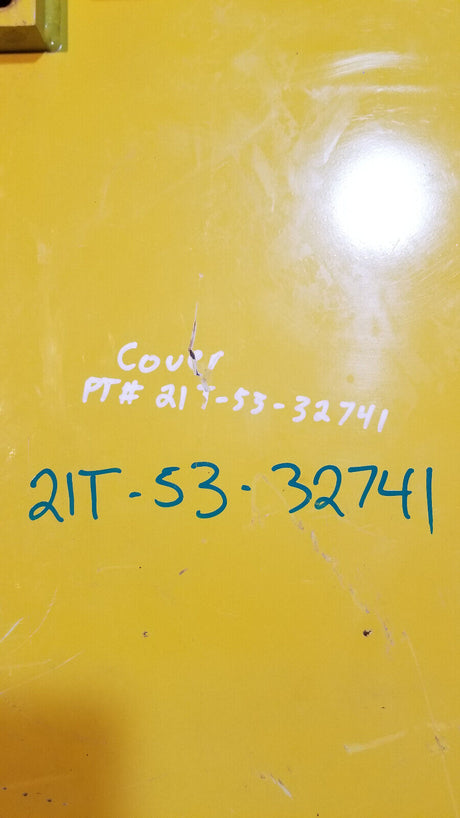 Cover
PT# 21T-53-32741
21T-53-32741